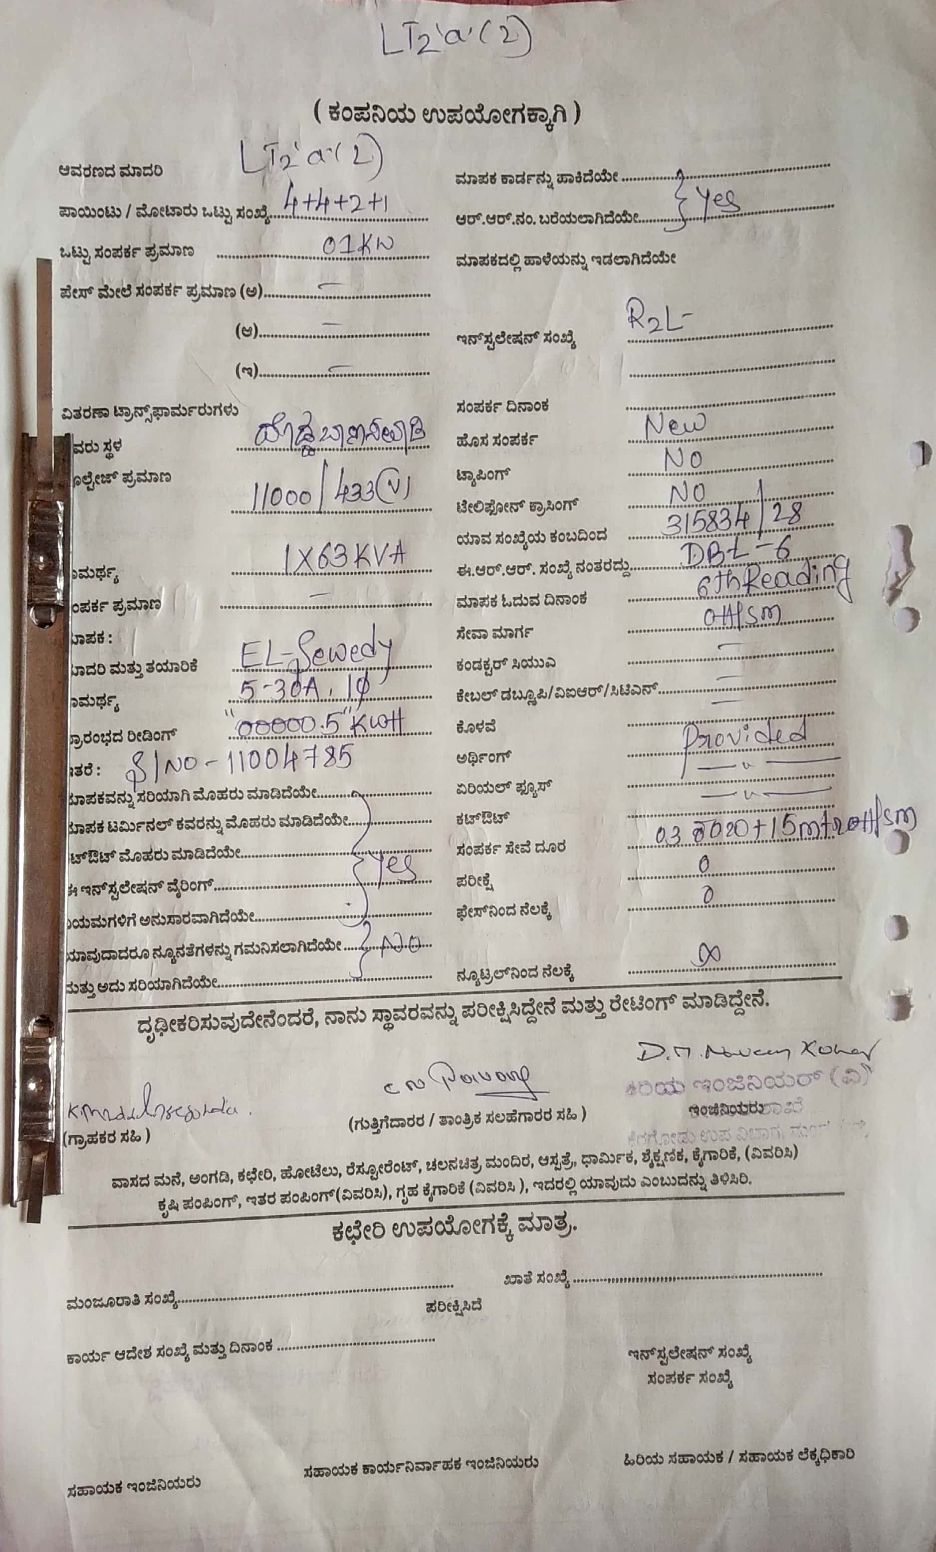 LT2'a'(2)
( ಕಂಪನಿಯ ಉಪಯೋಗಕ್ಕಾಗಿ )
ಆವರಣದ ಮಾದರಿ LT2'a'(2)
ಪಾಯಿಂಟು / ಮೋಟಾರು ಒಟ್ಟು ಸಂಖ್ಯೆ 4+4+2+1
ಒಟ್ಟು ಸಂಪರ್ಕ ಪ್ರಮಾಣ 01KW
ಪೇಸ್ ಮೇಲೆ ಸಂಪರ್ಕ ಪ್ರಮಾಣ (ಅ) —
(ಆ) —
(ಇ) —
ವಿತರಣಾ ಟ್ರಾನ್ಸ್‌ಫಾರ್ಮರುಗಳು
ವರು ಸ್ಥಳ
ೊಲ್ಟೇಜ್ ಪ್ರಮಾಣ 11000/433(V)
ಾಮರ್ಥ್ಯ 1X63KVA
ಂಪರ್ಕ ಪ್ರಮಾಣ —
ಾಪಕ :
ಾದರಿ ಮತ್ತು ತಯಾರಿಕೆ EL-Sewedy
ಾಮರ್ಥ್ಯ 5-30A, 1φ
್ರಾರಂಭದ ರೀಡಿಂಗ್ "00000.5" KWH
ತರೆ : S/NO-11004785
ಾಪಕವನ್ನು ಸರಿಯಾಗಿ ಮೊಹರು ಮಾಡಿದೆಯೇ
ಾಪಕ ಟರ್ಮಿನಲ್ ಕವರನ್ನು ಮೊಹರು ಮಾಡಿದೆಯೇ
ಟ್‌ಔಟ್ ಮೊಹರು ಮಾಡಿದೆಯೇ
ಈ ಇನ್‌ಸ್ಟಲೇಷನ್ ವೈರಿಂಗ್ Yes
ಿಯಮಗಳಿಗೆ ಅನುಸಾರವಾಗಿದೆಯೇ
ಯಾವುದಾದರೂ ನ್ಯೂನತೆಗಳನ್ನು ಗಮನಿಸಲಾಗಿದೆಯೇ NO
ಮತ್ತು ಅದು ಸರಿಯಾಗಿದೆಯೇ
ಮಾಪಕ ಕಾರ್ಡನ್ನು ಹಾಕಿದೆಯೇ
ಆರ್.ಆರ್.ನಂ. ಬರೆಯಲಾಗಿದೆಯೇ Yes
ಮಾಪಕದಲ್ಲಿ ಹಾಳೆಯನ್ನು ಇಡಲಾಗಿದೆಯೇ
ಇನ್‌ಸ್ಟಲೇಷನ್ ಸಂಖ್ಯೆ R2L-
ಸಂಪರ್ಕ ದಿನಾಂಕ
ಹೊಸ ಸಂಪರ್ಕ New
ಟ್ಯಾಪಿಂಗ್ NO
ಟೆಲಿಫೋನ್ ಕ್ರಾಸಿಂಗ್ NO
ಯಾವ ಸಂಖ್ಯೆಯ ಕಂಬದಿಂದ 315834/28
ಈ.ಆರ್.ಆರ್. ಸಂಖ್ಯೆ ನಂತರದ್ದು DBL-6
ಮಾಪಕ ಓದುವ ದಿನಾಂಕ 6th Reading
ಸೇವಾ ಮಾರ್ಗ OH/SM
ಕಂಡಕ್ಟರ್ ಸಿಯುಎ —
ಕೇಬಲ್ ಡಬ್ಲೂಪಿ/ವಿಐಆರ್/ಸಿಟಿಎಸ್ —
ಕೊಳವೆ —
ಅರ್ಥಿಂಗ್ Provided
ಏರಿಯಲ್ ಫ್ಯೂಸ್ — " —
ಕಟ್‌ಔಟ್ — " —
ಸಂಪರ್ಕ ಸೇವೆ ದೂರ
ಪರೀಕ್ಷೆ 0
ಫೇಸ್‌ನಿಂದ ನೆಲಕ್ಕೆ 0
ನ್ಯೂಟ್ರಲ್‌ನಿಂದ ನೆಲಕ್ಕೆ ∞
ದೃಢೀಕರಿಸುವುದೇನೆಂದರೆ, ನಾನು ಸ್ಥಾವರವನ್ನು ಪರೀಕ್ಷಿಸಿದ್ದೇನೆ ಮತ್ತು ರೇಟಿಂಗ್ ಮಾಡಿದ್ದೇನೆ.
D.M. Naveen Kumar
ಕಿರಿಯ ಇಂಜಿನಿಯರ್ (ವಿ)
(ಗ್ರಾಹಕರ ಸಹಿ )
(ಗುತ್ತಿಗೆದಾರರ / ತಾಂತ್ರಿಕ ಸಲಹೆಗಾರರ ಸಹಿ )
ಇಂಜಿನಿಯರು
ವಾಸದ ಮನೆ, ಅಂಗಡಿ, ಕಛೇರಿ, ಹೋಟೆಲು, ರೆಸ್ಟೋರೆಂಟ್, ಚಲನಚಿತ್ರ ಮಂದಿರ, ಆಸ್ಪತ್ರೆ, ಧಾರ್ಮಿಕ, ಶೈಕ್ಷಣಿಕ, ಕೈಗಾರಿಕೆ, (ವಿವರಿಸಿ)
ಕೃಷಿ ಪಂಪಿಂಗ್, ಇತರ ಪಂಪಿಂಗ್(ವಿವರಿಸಿ), ಗೃಹ ಕೈಗಾರಿಕೆ (ವಿವರಿಸಿ ), ಇದರಲ್ಲಿ ಯಾವುದು ಎಂಬುದನ್ನು ತಿಳಿಸಿರಿ.
ಕಛೇರಿ ಉಪಯೋಗಕ್ಕೆ ಮಾತ್ರ.
ಮಂಜೂರಾತಿ ಸಂಖ್ಯೆ
ಖಾತೆ ಸಂಖ್ಯೆ
ಪರೀಕ್ಷಿಸಿದೆ
ಕಾರ್ಯ ಆದೇಶ ಸಂಖ್ಯೆ ಮತ್ತು ದಿನಾಂಕ
ಇನ್‌ಸ್ಟಲೇಷನ್ ಸಂಖ್ಯೆ
ಸಂಪರ್ಕ ಸಂಖ್ಯೆ
ಸಹಾಯಕ ಇಂಜಿನಿಯರು
ಸಹಾಯಕ ಕಾರ್ಯನಿರ್ವಾಹಕ ಇಂಜಿನಿಯರು
ಹಿರಿಯ ಸಹಾಯಕ / ಸಹಾಯಕ ಲೆಕ್ಕಧಿಕಾರಿ